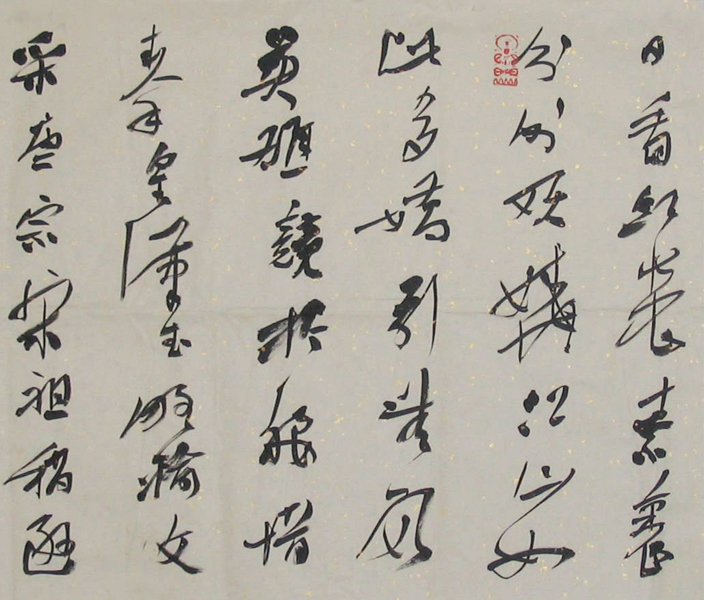 日看紅裝素裹
分外妖嬈江山如
此多嬌引無數
英雄競折腰惜
秦皇漢武略輸文
采唐宗宋祖稍遜